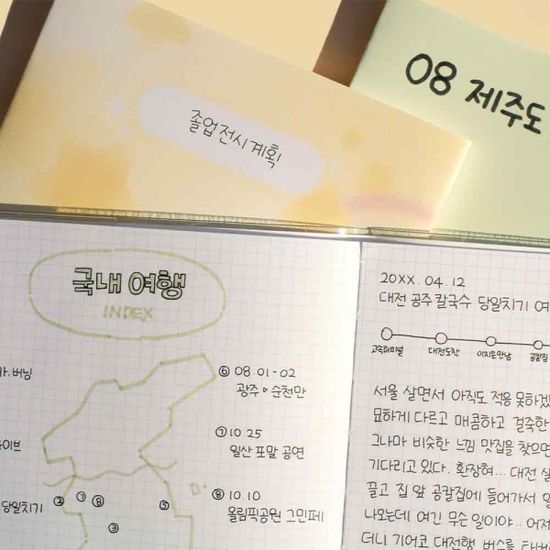 08 제주도
졸업전시계획
국내 여행
INDEX
⑥ 08.01-02
광주•순천만
⑦ 10.25
일산 포말 공연
⑧ 10.10
올림픽공원 그민페
당일치기
① ② ⑤
③
20XX. 04. 12
대전 공주칼국수 당일치기 여
고속터미널 대전도착 이지은만남 공칼집
서울 살면서 아직도 적응 못하겠
묘하게 다르고 매콤하고 걸쭉한
그나마 비슷한 느낌 맛집을 찾으면
기다리고 있다. 환장혀... 대전 살
끌고 집 앞 공칼집에 들어가서 얼
나오는데 여긴 무슨 일이야.. 어제
더니 기어코 대전행 버스를 타버